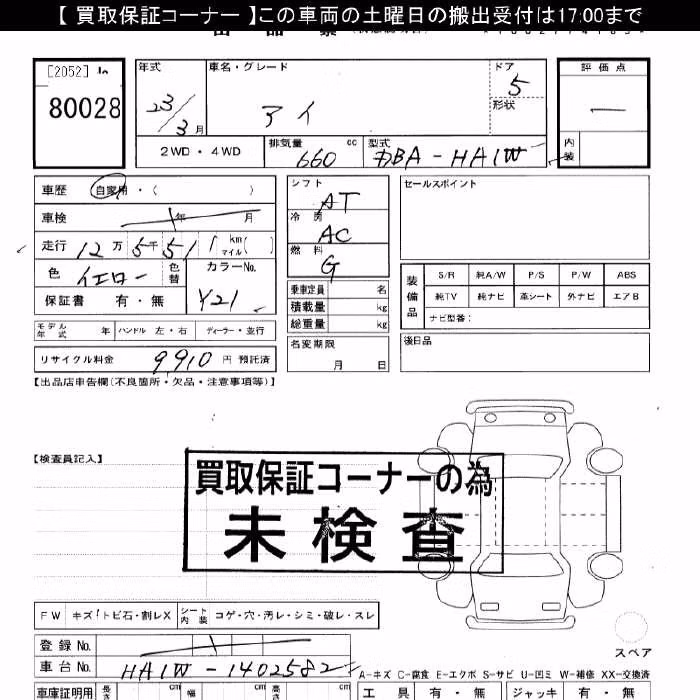 【 買取保証コーナー 】この車両の土曜日の搬出受付は17:00まで
[2052]
80028
年式 車名・グレード ドア 評価点
23/3月 アイ 5 形状 —
2WD・4WD 排気量 660 cc 型式 DBA-HA1W 内装
車歴 自家用・( )
車検 年 月
走行 12万5千51 km マイル( )
色 イエロー 色替 カラーNo. Y21
保証書 有・無
シフト AT
冷房 AC
燃料 G
乗車定員 名
積載量 kg
総重量 kg
名変期限 月 日
セールスポイント
装備品 S/R 純A/W P/S P/W ABS
純TV 純ナビ 革シート 外ナビ エアB
ナビ型番:
後日品
モデル年式 年 ハンドル 左・右 ディーラー・並行
リサイクル料金 9910 円 預託済
【出品店申告欄(不良箇所・欠品・注意事項等)】
【検査員記入】
買取保証コーナーの為
未検査
FW キズ/トビ石・割レX シート内装 コゲ・穴・汚レ・シミ・破レ・スレ
登録No.
車台No. HA1W-1402582
スペア
A-キズ C-腐食 E-エクボ S-サビ U-凹ミ W-補修 XX-交換済
車庫証明用 長さ cm 幅 cm 高さ cm 工具 有・無 ジャッキ 有・無